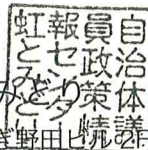 自治体議
員政策情
報センター
虹とみどり
野田ビル2F